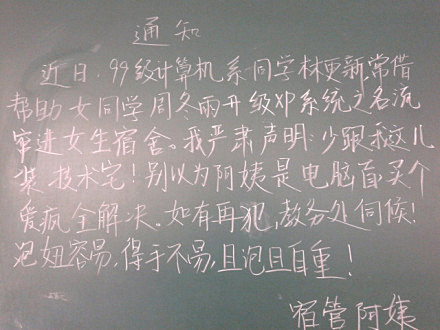 通知
近日,99级计算机系同学林更新常借
帮助女同学周冬雨升级XP系统之名流
窜进女生宿舍。我严肃声明:少跟我这儿
装技术宅!别以为阿姨是电脑盲,买个
爱疯全解决。如有再犯,教务处伺候!
泡妞容易,得手不易,且泡且自重!
宿管阿姨